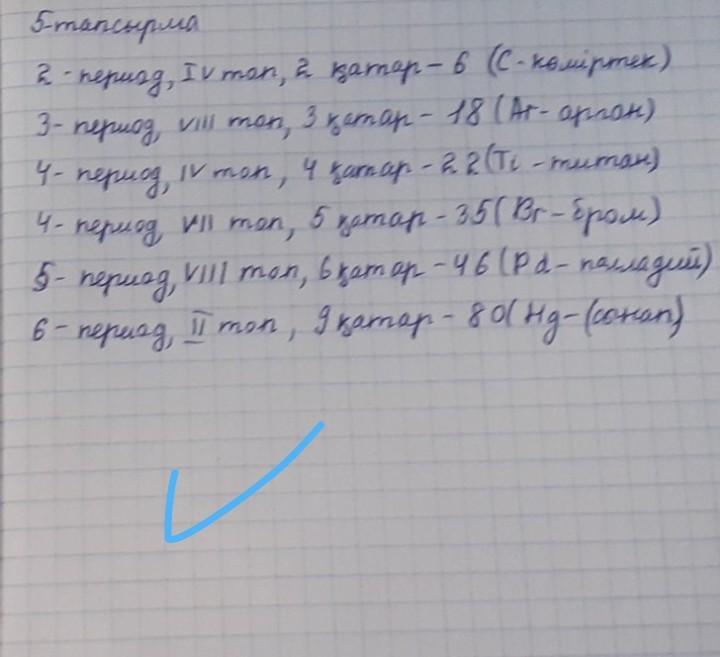 5-тапсырма
2-период, IV топ, 2 қатар - 6 (C-көміртек)
3-период, VIII топ, 3 қатар - 18 (Ar-аргон)
4-период, IV топ, 4 қатар - 22 (Ti-титан)
4-период, VII топ, 5 қатар - 35 (Br-бром)
5-период, VIII топ, 6 қатар - 46 (Pd-палладий)
6-период, II топ, 9 қатар - 80( Hg-(сынап)